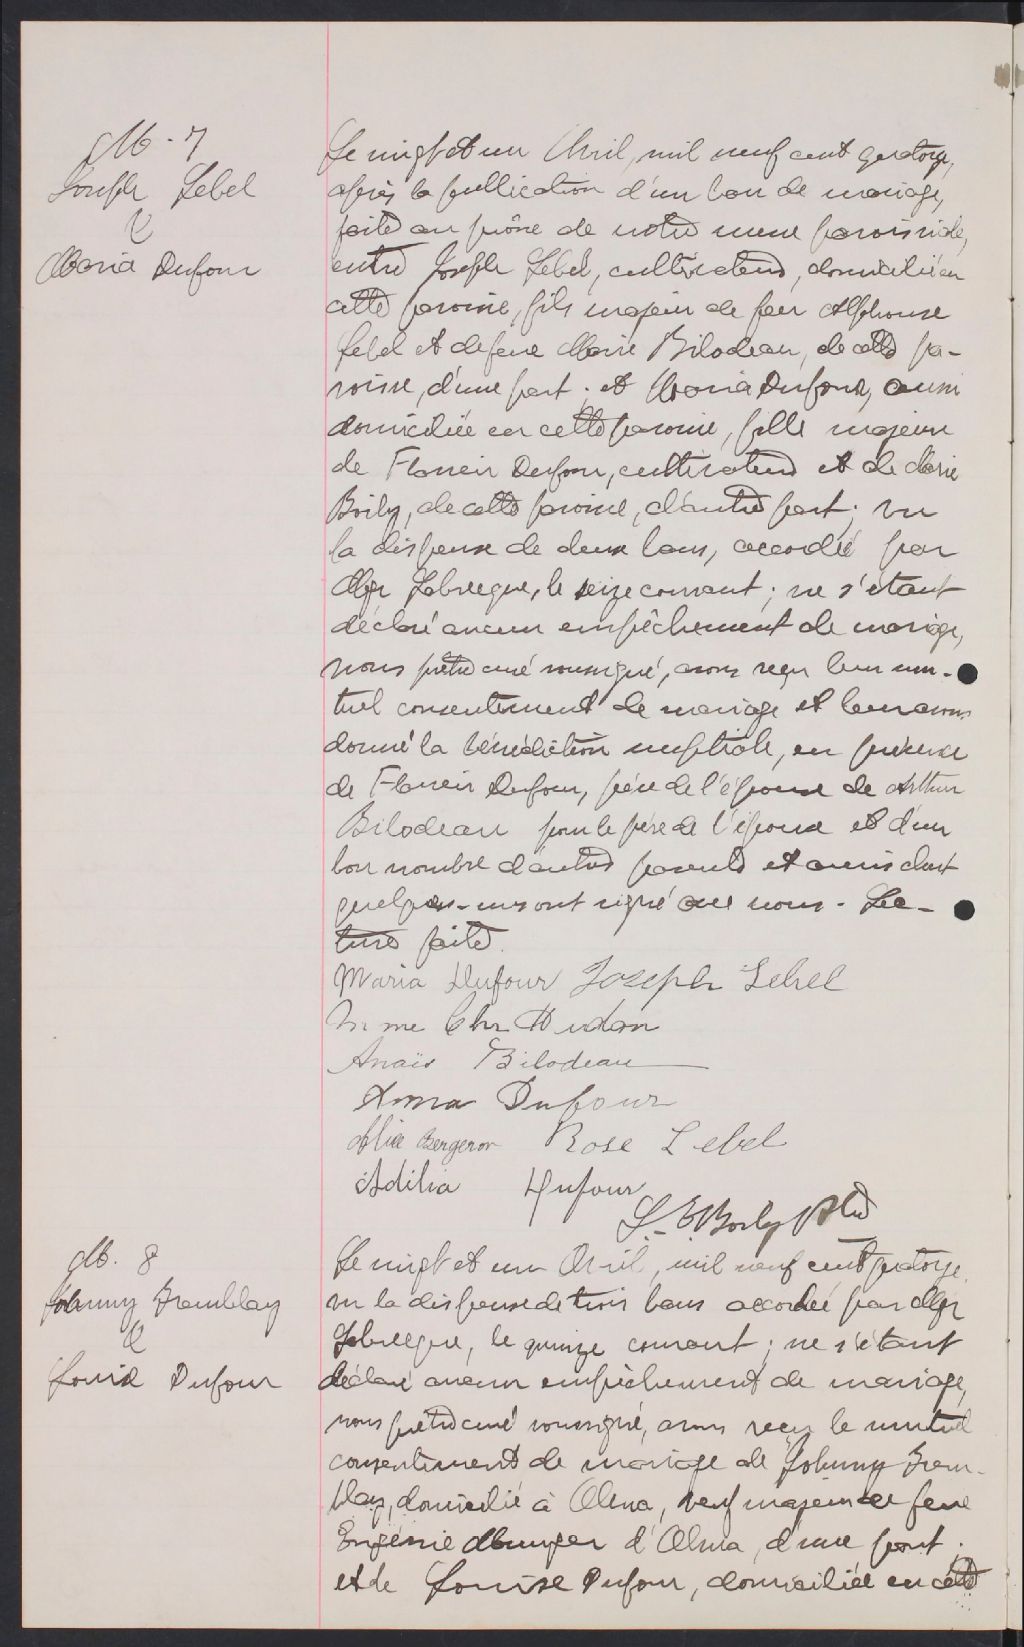 M - 7
Joseph Lebel
&
Maria Dufour
Le vingt et un Avril, mil neuf cent quatorze,
après la publication d'un ban de mariage,
faite au prône de notre messe paroissiale,
entre Joseph Lebel, cultivateur, domicilié en
cette paroisse, fils majeur de feu Alphonse
Lebel et de feue Marie Bilodeau, de cette pa-
roisse, d'une part; et Maria Dufour, aussi
domiciliée en cette paroisse, fille majeure
de Florien Dufour, cultivateur et de Marie
Boily, de cette paroisse, d'autre part; vu
la dispense de deux bans, accordée par
Mgr Labrecque, le seize courant; ne s'étant
déclaré aucun empêchement de mariage,
nous prêtre curé soussigné, avons reçu leur mu-
tuel consentement de mariage et leur avons
donné la bénédiction nuptiale, en présence
de Florien Dufour, père de l'épouse de Arthur
Bilodeau pour le père de l'époux et d'un
bon nombre d'autres parents et amis dont
quelques-uns ont signé avec nous. Lec-
ture faite.
Maria Dufour Joseph Lebel
Mme Chs Hudon
Anaïs Bilodeau
Anna Dufour
Alice Bergeron Rose Lebel
Adilia Dufour
L. E. Boily Ptre
M. 8
Johnny Tremblay
&
Louise Dufour
Le vingt et un Avril, mil neuf cent quatorze,
vu la dispense de trois bans accordée par Mgr
Labrecque, le quinze courant; ne s'étant
déclaré aucun empêchement de mariage,
nous prêtre curé soussigné, avons reçu le mutuel
consentement de mariage de Johnny Trem-
blay, domicilié à Alma, veuf majeur de feue
Eugénie Munger d'Alma, d'une part.
et de Louise Dufour, domiciliée en cette